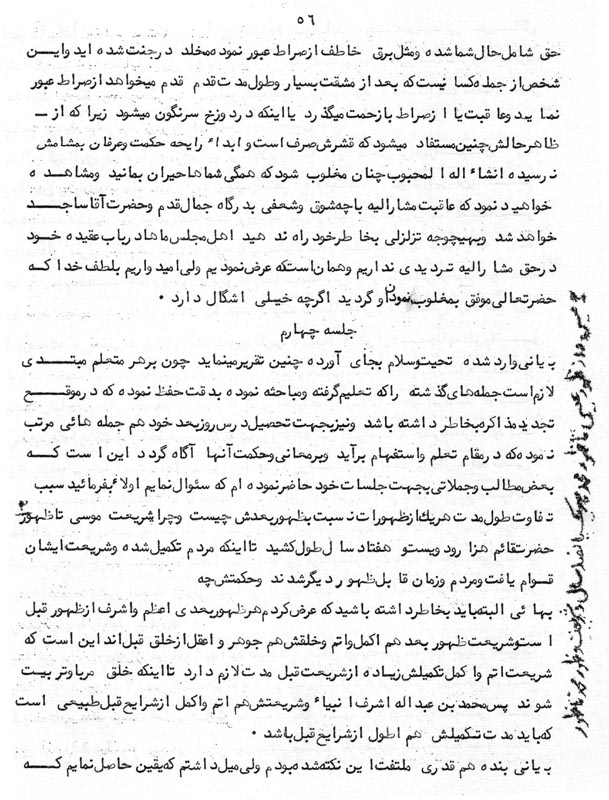 ٥٦
حق شامل حال شما شده و مثل برق خاطف از صراط عبور نموده مخلد در جنت شده اید و این
شخص از جمله کسا نیست که بعد از مشقت بسیار و طول مدت قدم قدم میخواهد از صراط عبور
نماید و عاقبت یا از صراط با زحمت میگذرد یا اینکه در دوزخ سرنگون میشود زیرا که از
ظاهر حالش چنین مستفاد میشود که قشرش صرف است و ابداً رایحه حکمت و عرفان بمشامش
نرسیده انشاءاله المحبوب چنان مغلوب شود که همگی شماها حیران بمانید و مشاهده
خواهید نمود که عاقبت مشارالیه با چه شوق و شعفی بدرگاه جمال قدم و حضرت آقا ساجد
خواهد شد و بهیچوجه تزلزلی بخاطر خود راه ندهید اهل مجلس ماها در باب عقیده خود
در حق مشارالیه تردیدی نداریم و همان است که عرض نمودیم ولی امیدواریم بلطف خدا که
حضرتعالی موفق بمغلوب نمودن او گردید اگرچه خیلی اشگال دارد .
جلسه چهارم
بیانی وارد شده تحیت و سلام بجای آورده چنین تقریر مینماید چون بر هر متعلم مبتدی
لازم است جمله های گذشته را که تعلیم گرفته و مباحثه نموده بدقت حفظ نموده که در موقع
تجدید مذاکره بخاطر داشته باشد و نیز بجهت تحصیل درس روز بعد خود هم جمله هائی مرتب
نموده که در مقام تعلم و استفهام برآید و بر معانی و حکمت آنها آگاه گردد این است که
بعض مطالب و جملاتی بجهت جلسات خود حاضر نموده ام که سئوال نمایم اولاً بفرمائید سبب
تفاوت طول مدت هر یک از ظهورات نسبت بظهور بعدش چیست و چرا شریعت موسی تا ظهور
حضرت قائم هزار و دویست و هفتاد سال طول کشید تا اینکه مردم تکمیل شده و شریعت ایشان
قوام یافت و مردم و زمان قابل ظهور دیگر شدند و حکمتش چه
بهائی البته باید بخاطر داشته باشید که عرض کردم هر ظهور بعدی اعظم و اشرف از ظهور قبل
است و شریعت ظهور بعد هم اکمل و اتم و خلقش هم جوهر و اعقل از خلق قبل اند این است که
شریعت اتم و اکمل تکمیلش زیاده از شریعت قبل مدت لازم دارد تا اینکه خلق مربا و تربیت
شوند پس محمد بن عبداله اشرف انبیاء و شریعتش هم اتم و اکمل از شرایع قبل طبیعی است
که باید مدت تکمیلش هم اطول از شرایع قبل باشد .
بیانی بنده هم قدری ملتفت این نکته شده بودم ولی میل داشتم که یقین حاصل نمایم که